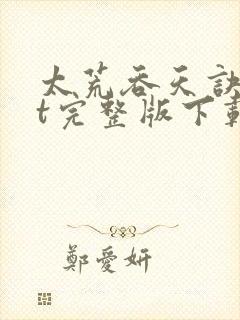 太荒吞天訣
t完整版下載
鄭愛妍